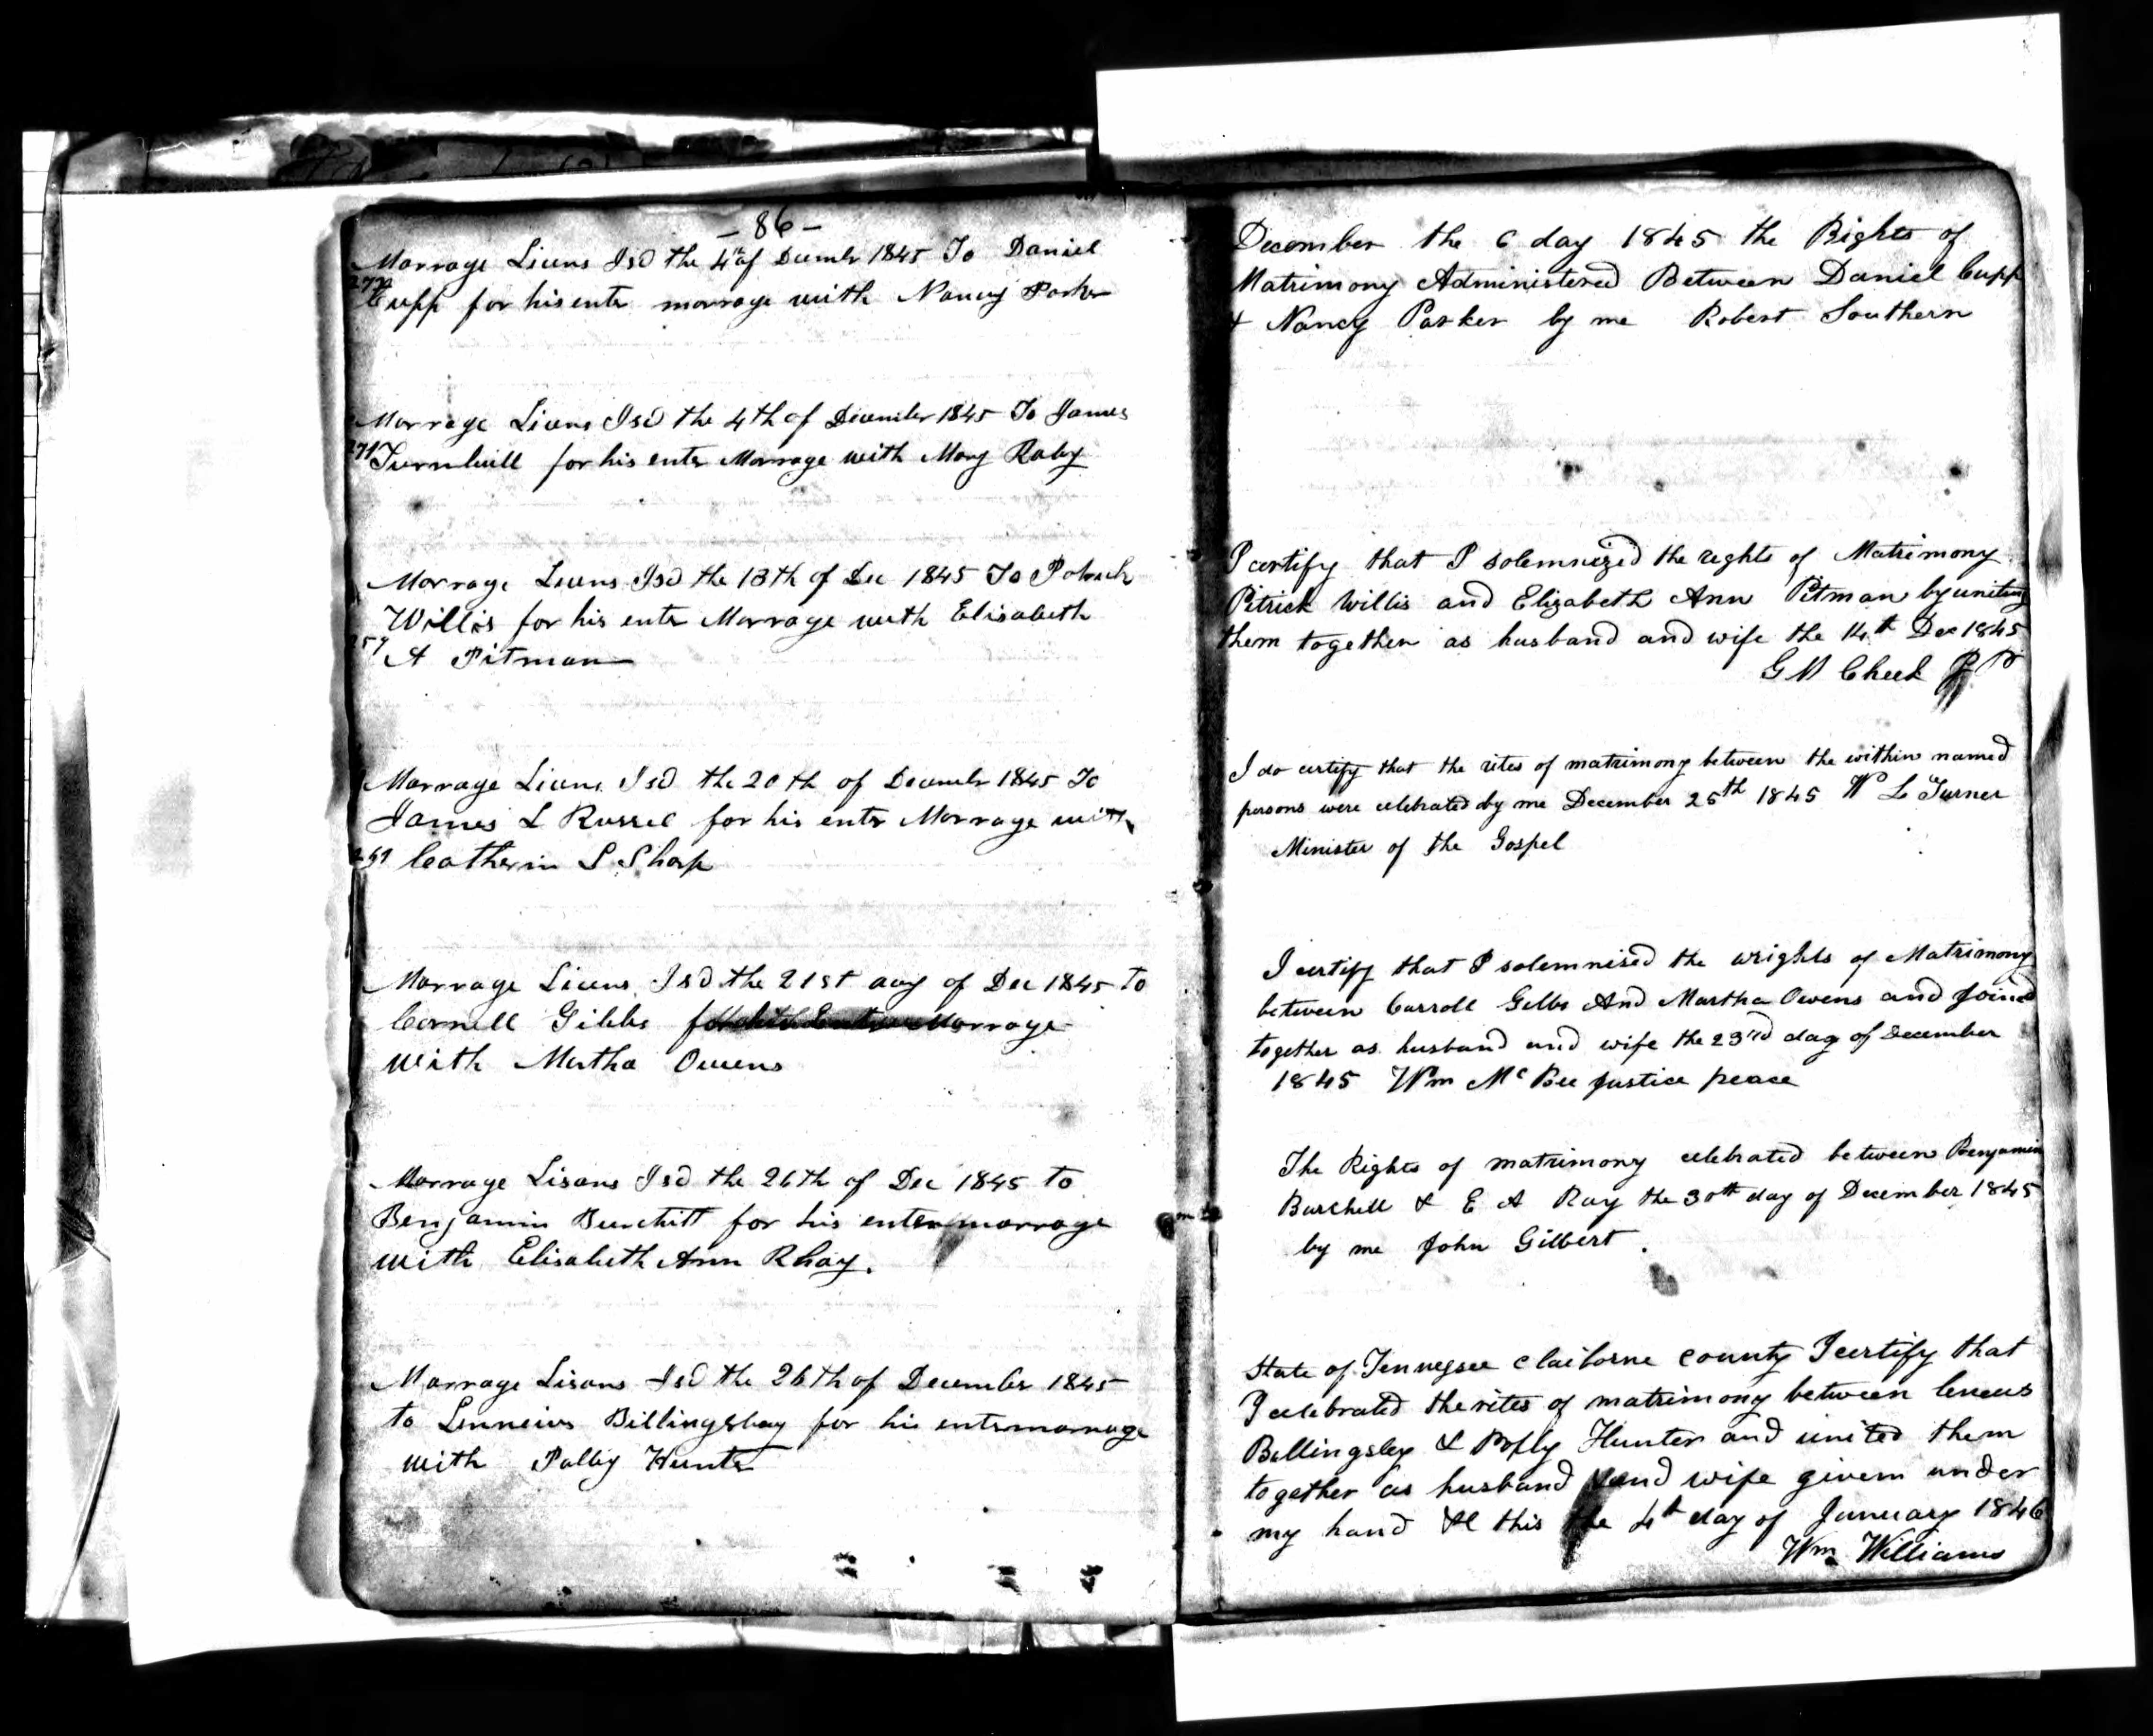 - 86 -
Marrage Licens Isd the 4th of Decembr 1845 To Daniel
Cupp for his enter marrage with Nancy Parker
Marrage Licens Isd the 4th of December 1845 To James
271 Turnbull for his enter Marrage with Mary Raby
Marrage Licens Isd the 13th of Dec 1845 To Patrick
Willis for his enter Marrage with Elisabeth
A Pitman
Marrage Licens Isd the 20th of Decembr 1845 To
James L Russel for his enter Marrage with
Catherin L Sharp
Marrage Licens Isd the 21st day of Dec 1845 to
Cornell Gibbs Marrage
with Martha Owens
Marrage Lisans Isd the 26th of Dec 1845 to
Benjamin Burchitt for his enter marrage
with Elisabeth Ann Rhay.
Marrage Lisans Isd the 26th of December 1845
to Billingsbay for his entermarrage
with Polly Hunter
December the 6 day 1845 the Rights of
Matrimony Administered Between Daniel Cupp
+ Nancy Parker by me Robert Southern
I certify that I solemnized the rights of Matrimony
Petrick Willis and Elizabeth Ann Pitman by uniting
them together as husband and wife the 14th Dec 1845
G W Cheek
I do certify that the rites of matrimony between the within named
persons were celebrated by me December 25th 1845 W L Turner
Minister of the Gospel
I certify that I solemnised the wrights of Matrimony
between Carroll Gibbs And Martha Owens and joined
together as husband and wife the 23rd day of December
1845 Wm McBee Justice peace
The Rights of matrimony celebrated between Benjamin
Burchell & E A Ray the 30th day of December 1845
by me John Gilbert.
State of Tennessee Claiborne County I certify that
I celebrated the rites of matrimony between
Billingsley & Polly Hunter and united them
together as husband and wife givem under
my hand this the 4th day of January 1846
Wm Williams